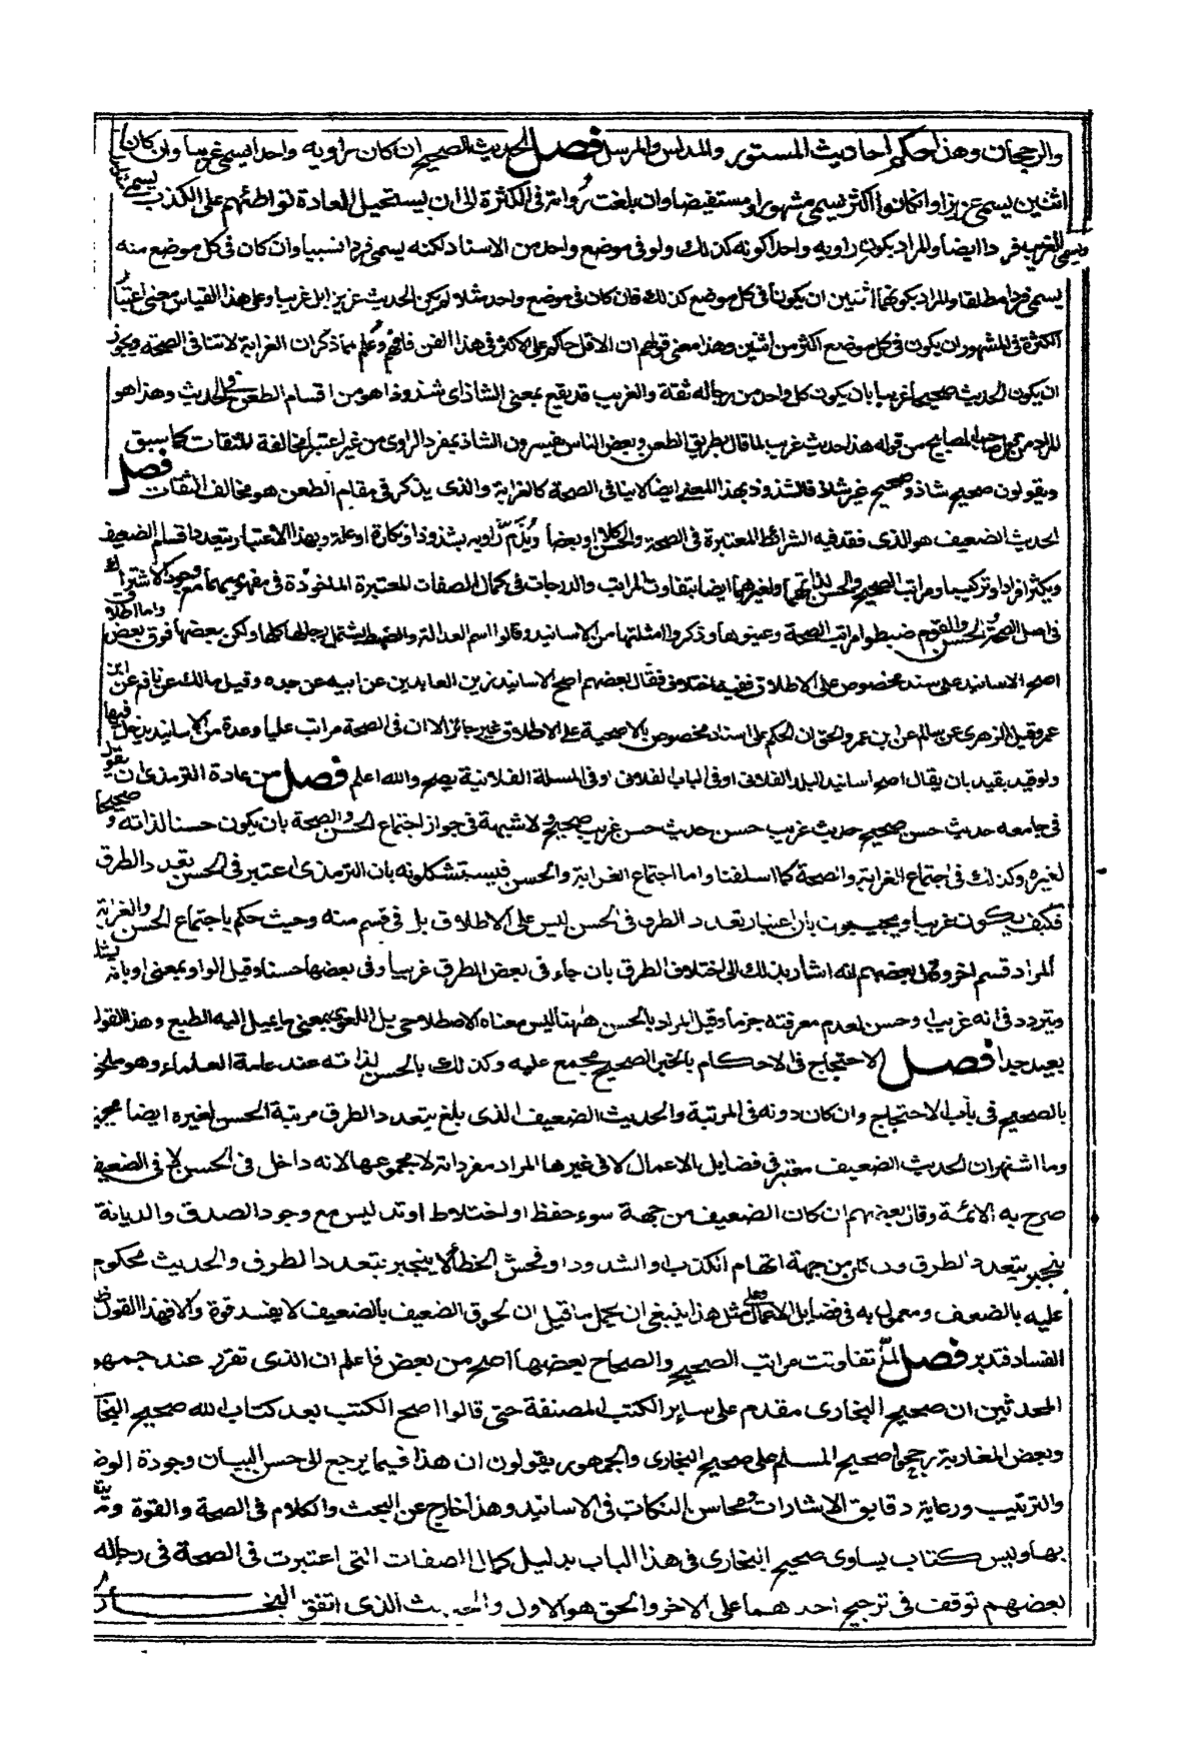 والرجحان وهذا حكم احاديث المستور والمدلس والمرسل فصل الحديث الصحيح ان كان راويه واحدا يسمى غريبا وان كان
اثنين يسمى عزيزا وان كانوا اكثر يسمى مشهورا او مستفيضا وان بلغت رواته فى الكثرة الى ان يستحيل العادة تواطئهم على الكذب يسمى
ويسمى الغريب فردا ايضا والمراد بكون راويه واحدا كونه كذلك ولو فى موضع واحد من الاسناد لكنه يسمى فردا نسبيا وان كان فى كل موضع منه
يسمى فردا مطلقا والمراد بكونهما اثنين ان يكونا فى كل موضع كذلك فان كان فى موضع واحد مثلا لم يكن الحديث عزيزا بل غريبا وعلى هذا القياس معنى اعتبار
الكثرة فى المشهور ان يكون فى كل موضع اكثر من اثنين وهذا معنى قولهم ان الاقل حاكم على الاكثر فى هذا الفن فافهم وعلم بما ذكر ان الغرابة لا تنافى الصحة ويجوز
ان يكون الحديث صحيحا غريبا بان يكون كل واحد من رجاله ثقة والغريب قد يقع بمعنى الشاذ اى شذوذا هو من اقسام الطعن فى الحديث وهذا هو
المراد من قول صاحب المصابيح من قوله هذا حديث غريب لما قال بطريق الطعن وبعض الناس يفسرون الشاذ بمفرد الراوى من غير اعتبار مخالفة للثقات كما سبق
ويقولون صحيح شاذ وصحيح غير شاذ فالشذوذ بهذا المعنى ايضا لا ينافى الصحة كالغرابة والذى يذكر فى مقام الطعن هو مخالف الثقات فصل
الحديث الضعيف هو الذى فقد فيه الشرائط المعتبرة فى الصحة والحسن كلا او بعضا ويذم راويه بشذوذ او نكارة او علة وبهذا الاعتبار يتعدد اقسام الضعيف
ويكثر افرادا وتركيبا ومراتب الصحيح والحسن لذاتهما ولغيرهما ايضا بتفاوت المراتب والدرجات فى كمال الصفات المعتبرة الماخوذة فى مفهوميهما مع وجود الاشتراك
فى اصل الصحة والحسن والقوم ضبطوا مراتب الصحة وعينوها وذكروا امثلتها من الاسانيد وقالوا اسم العدالة والضبط يشتمل رجالها كلها ولكن بعضها فوق بعض واما اطلاق
اصح الاسانيد على سند مخصوص على الاطلاق ففيه اختلاف فقال بعضهم اصح الاسانيد زين العابدين عن ابيه عن جده وقيل مالك عن نافع عن ابن
عمر وقيل الزهرى عن سالم عن ابن عمر والحق ان الحكم على اسناد مخصوص بالاصحية على الاطلاق غير جائز الا ان فى الصحة مراتب عليا وعدة من الاسانيد يدخل فيها
ولو قيد بقيد بان يقال اصح اسانيد البلد الفلانى او فى الباب الفلانى او فى المسئلة الفلانية يصح والله اعلم فصل من عادة الترمذى ان يقول
فى جامعه حديث حسن صحيح حديث غريب حسن حديث حسن غريب صحيح ولا شبهة فى جواز اجتماع الحسن والصحة بان يكون حسنا لذاته وصحيحا
لغيره وكذلك فى اجتماع الغرابة والصحة كما اسلفنا واما اجتماع الغرابة والحسن فيستشكلونه بان الترمذى اعتبر فى الحسن تعدد الطرق
فكيف يكون غريبا ويجيبون بان اعتبار تعدد الطرق فى الحسن ليس على الاطلاق بل فى قسم منه وحيث حكم باجتماع الحسن والغرابة
المراد قسم اخر وقال بعضهم انه اشار بذلك الى اختلاف الطرق بان جاء فى بعض الطرق غريبا وفى بعضها حسنا وقيل الواو بمعنى او بانه يشك
ويتردد فى انه غريب او حسن لعدم معرفته جزما وقيل المراد بالحسن ههنا ليس معناه الاصطلاحى بل اللغوى بمعنى ما يميل اليه الطبع وهذا القول
بعيد جدا فصل الاحتجاج فى الاحكام بالخبر الصحيح مجمع عليه وكذلك بالحسن لذاته عند عامة العلماء وهو ملحق
بالصحيح فى باب الاحتجاج وان كان دونه فى المرتبة والحديث الضعيف الذى بلغ بتعدد الطرق مرتبة الحسن لغيره ايضا مجمع
وما اشتهر ان الحديث الضعيف معتبر فى فضايل الاعمال لا فى غيرها المراد مفرداته لا مجموعها لانه داخل فى الحسن لا فى الضعيف
صرح به الائمة وقال بعضهم ان كان الضعيف من جهة سوء حفظ او اختلاط او تدليس مع وجود الصدق والديانة
ينجبر بتعدد الطرق وان كان من جهة اتهام الكذب او الشذوذ او فحش الخطأ لا ينجبر بتعدد الطرق والحديث محكوم
عليه بالضعف ومعمول به فى فضايل الاعمال وعلى مثل هذا ينبغى ان يحمل ما قيل ان لحوق الضعيف بالضعيف لا يفيد قوة والا فهذا القول ظاهر
الفساد فتدبر فصل لما تفاوتت مراتب الصحيح والصحاح بعضها اصح من بعض فاعلم ان الذى تقرر عند جمهو
المحدثين ان صحيح البخارى مقدم على سايرالكتب المصنفة حتى قالوا اصح الكتب بعد كتاب الله صحيح البخا
وبعض المغاربة رجحوا صحيح المسلم على صحيح البخارى والجمهور يقولون ان هذا فيما يرجع الى حسن البيان وجودة الوض
والترتيب ورعاية دقايق الاشارات ومحاسن النكات فى الاسانيد وهذا خارج عن البحث والكلام فى الصحة والقوة وما يتعلق
بها وليس كتاب يساوى صحيح البخارى فى هذا الباب بدليل كمال الصفات التى اعتبرت فى الصحة فى رجاله
بعضهم توقف فى ترجيح احدهما على الاخر والحق هو الاول والحديث الذى اتفق البخـــار